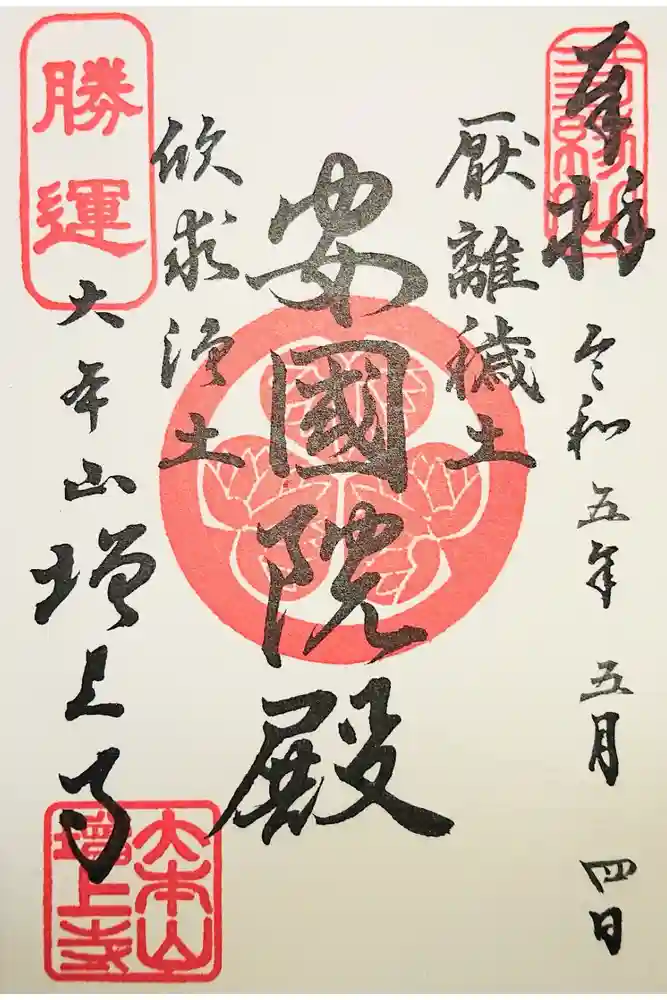 奉拝
令和五年 五月 四日
厭離穢土
安國院殿
欣求浄土
勝運
大本山増上寺
大本山
増上寺